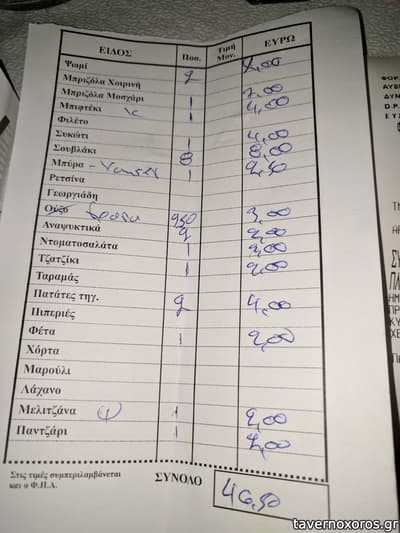 ΕΙΔΟΣ Ποσ. Τιμή Μον. ΕΥΡΩ
Ψωμί 2
Μπριζόλα Χοιρινή 1 7,00
Μπριζόλα Μοσχάρι 1 4,00
Μπιφτέκι
Φιλέτο
Συκώτι 1 4,00
Σουβλάκι 8 8,00
Μπύρα 1 2,50
Ρετσίνα
Γεωργιάδη
Ούζο 250 3,00
Αναψυκτικά 2 2,00
Ντοματοσαλάτα 1 3,00
Τζατζίκι 1 2,00
Ταραμάς
Πατάτες τηγ. 2 4,00
Πιπεριές
Φέτα 1 2,00
Χόρτα
Μαρούλι
Λάχανο
Μελιτζάνα 1 2,00
Παντζάρι 1 2,00
Στις τιμές συμπεριλαμβάνεται
και ο Φ.Π.Α. ΣΥΝΟΛΟ 46,50
ΦΟΡ.
ΑΥΘ
ΔΥΝ
D.P.
ΕΥΣ
tavernoxoros.gr